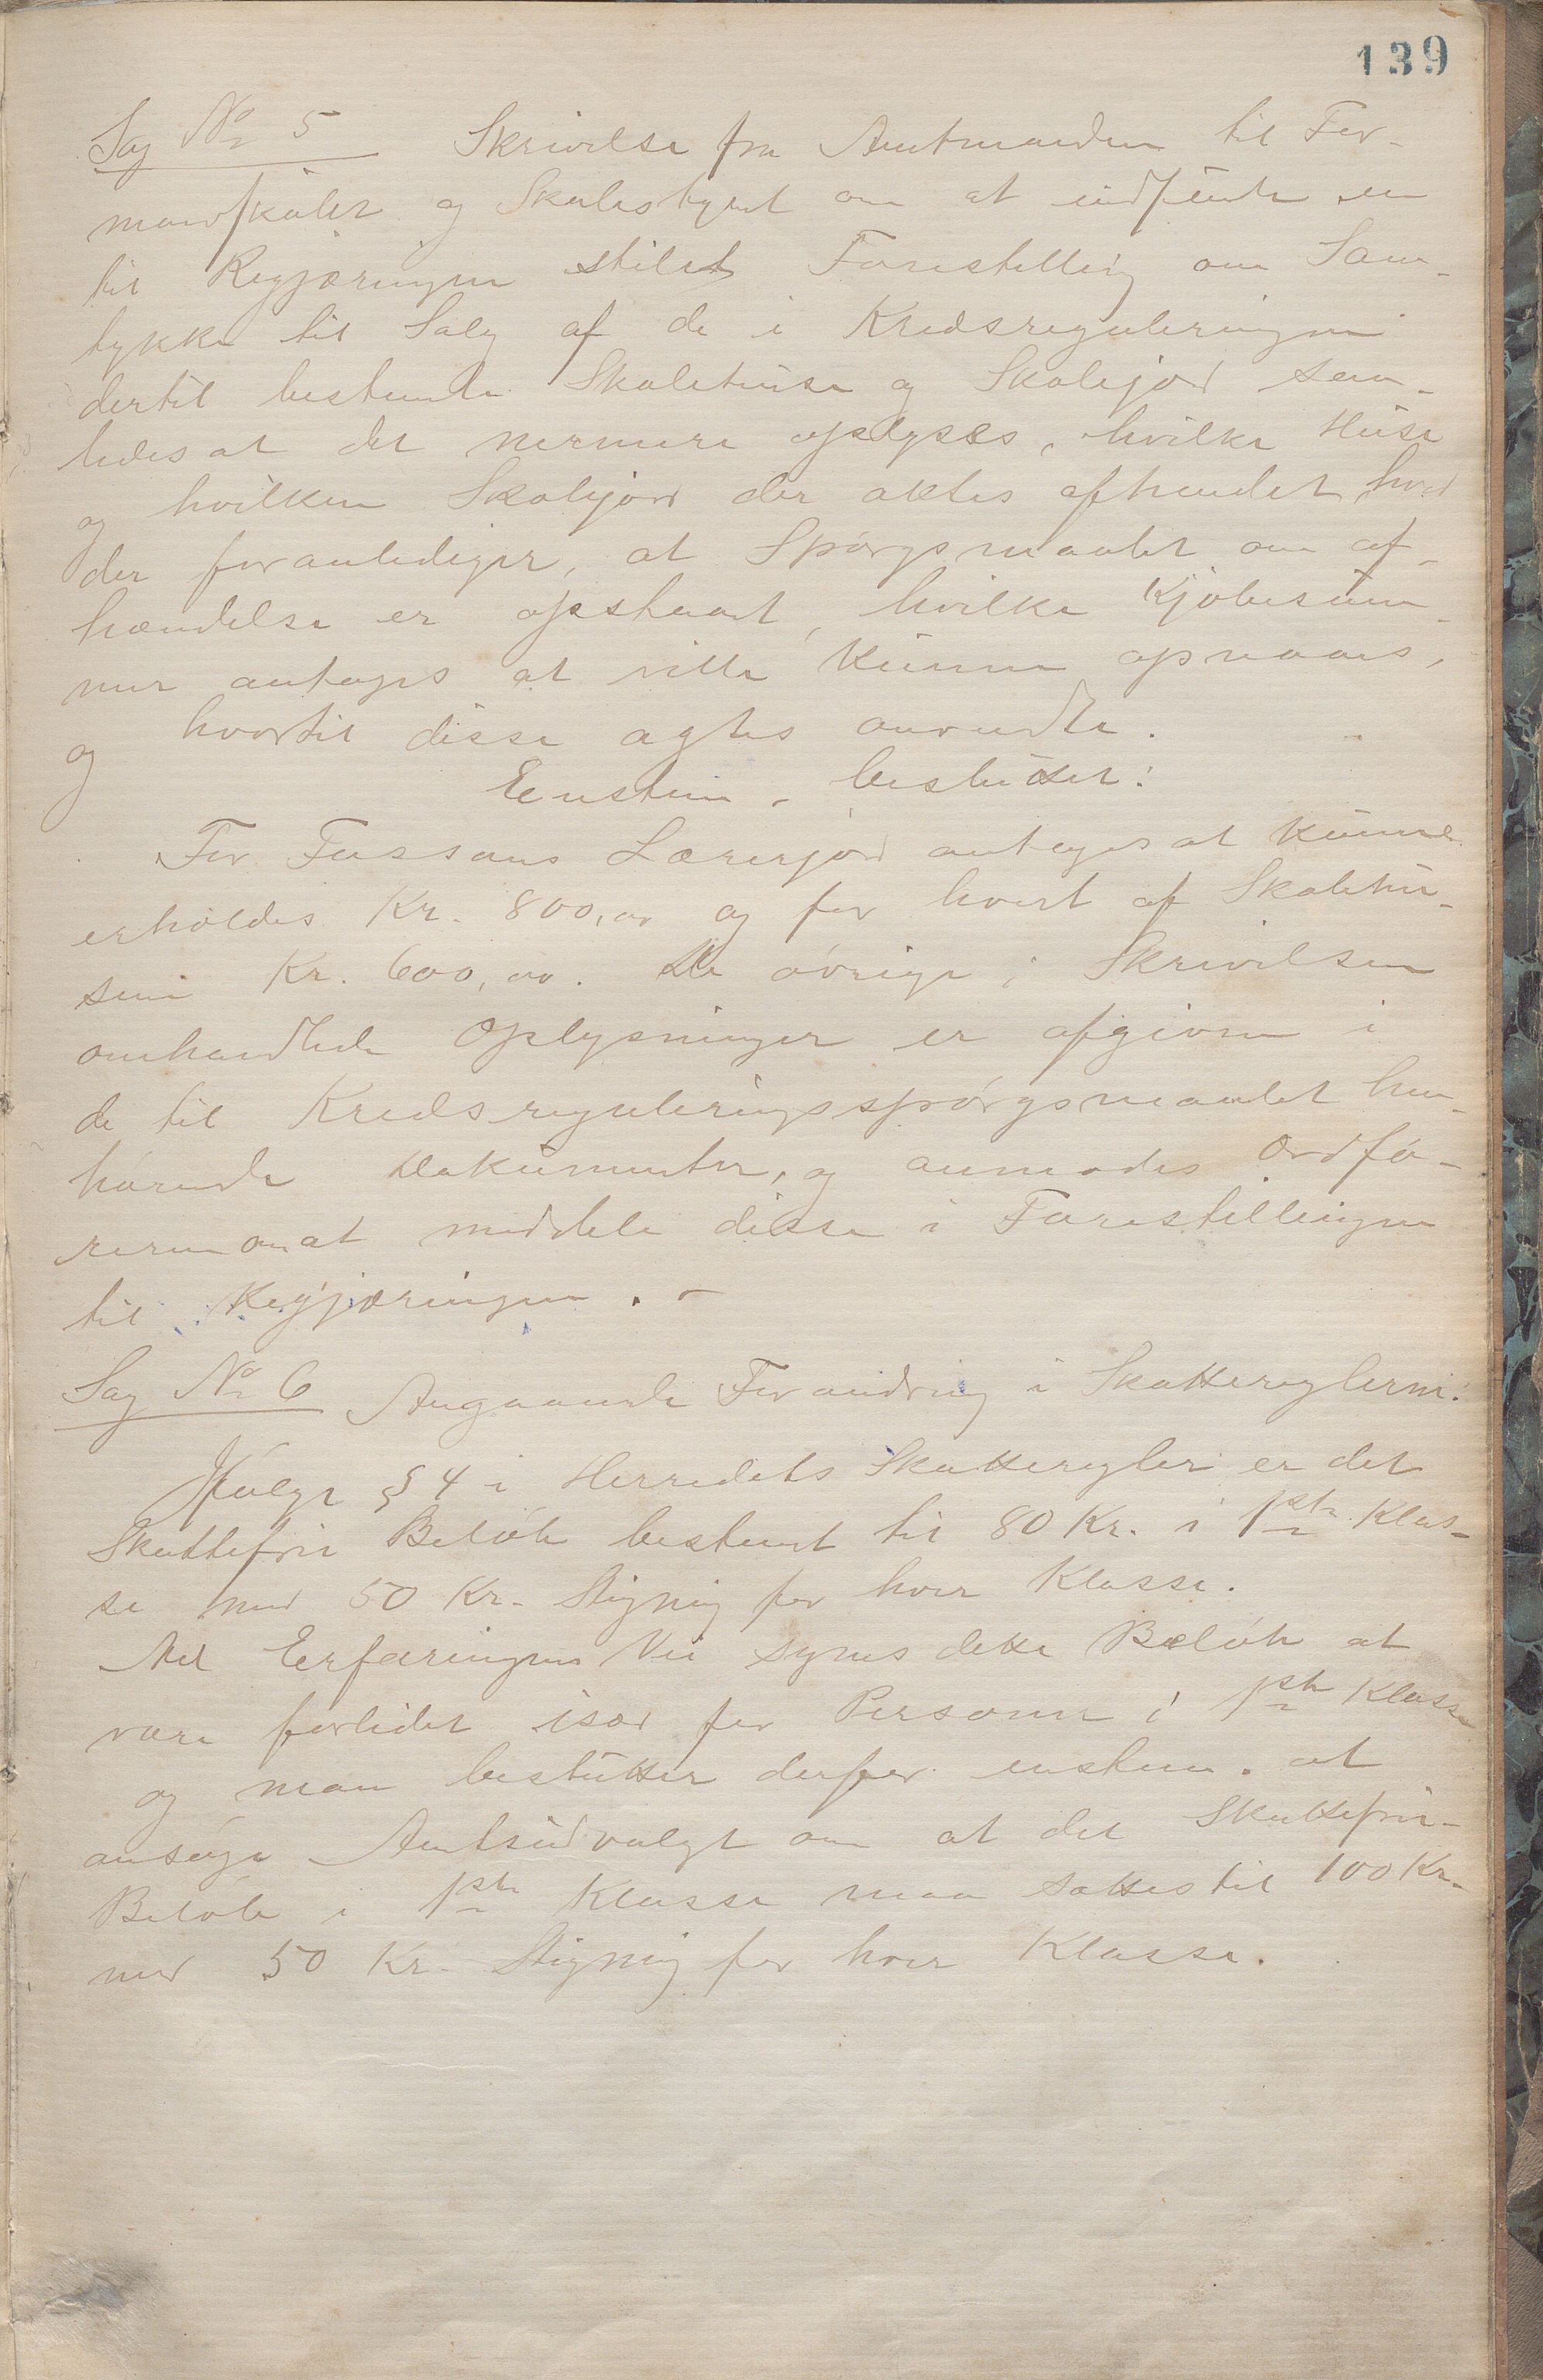 139
Sag No 5 Skrivelse fra Amtmanden til For-
mandskabet og Skolestyret om at indsende en
til Regjæringen stilet Forestilling om Sam-
tykke til Salg af de i Kredsreguleringen
dertil bestemte Skolehuse og Skolejord sam-
tidesat det nermere oplyses, hvilke Huse
og hvilken Skolejord der aktes afhendet, hvad
der foranlediger, at Spørgsmaalet om af-
hændelse er opstaaet, hvilke Kjøbesum-
mer antages at ville kunne opnaaes,
og hvortil disse agtes anvendte.
Eenstem. besluttet:
For Fossans Lærerjord antages at kunne
erholdes Kr. 800,00 og for hvert af Skolehu-
sene Kr. 600,00. De øvrige i Skrivelsen
omhandlede Oplysninger er afgivne i
de til Kredsreguleringsspørgsmaalet hen-
hørende Dokumenter, og anmodes Ordfø-
reren om at meddele disse i Forestillingen
til Regjæringen. -
Sag No 6 Angaaende Forandring i Skattereglerne:
Ifølge § 4 i Herredets Skatteregler er det
Skattefrie Beløb bestemt til 80 Kr. i 1ste Klas-
se med 50 Kr. Stigning for hver Klasse.
Ad Erfaringens Vei synes dette Beløb at
være forlidet især for Personer i 1ste Klasse
og man beslutter derfor enstem. at
ansøge Amtsudvalget om at det Skattefrie
Beløb i 1ste Klasse maa sættes til 100 Kr.
med 50 Kr. Stigning for hver Klasse.